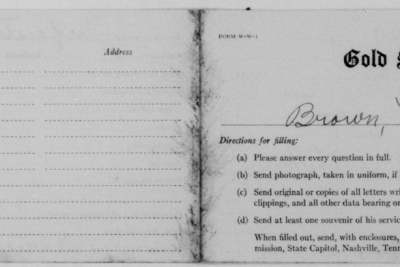 Address
FORM W-W-1
Gold S
Brown,
Directions for filing:
(a) Please answer every question in full.
(b) Send photograph, taken in uniform, if
(c) Send original or copies of all letters wri
clippings, and all other data bearing on
(d) Send at least one souvenir of his servic
When filled out, send, with enclosures,
mission, State Capitol, Nashville, Tenn